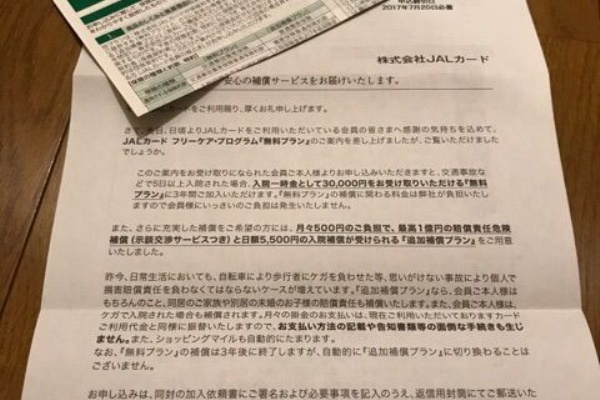 2017年7月20日必着
株式会社JALカード
安心の補償サービスをお届けいたします。
カードをご利用賜り、厚くお礼申し上げます。
さて、先日、日頃よりJALカードをご利用いただいている会員の皆さまへ感謝の気持ちを込めて、
JALカード フリーケア・プログラム『無料プラン』のご案内を差し上げましたが、ご覧いただけました
でしょうか。
このご案内をお受け取りになられた会員ご本人様よりお申し込みいただきますと、交通事故な
どで5日以上入院された場合、入院一時金として30,000円をお受け取りいただける『無料
プラン』に3年間ご加入いただけます。『無料プラン』の補償に関わる料金は弊社が負担いたし
ますので会員様にいっさいのご負担は発生いたしません。
また、さらに充実した補償をご希望の方には、月々500円のご負担で、最高1億円の賠償責任危険
補償（示談交渉サービスつき）と日額5,500円の入院補償が受けられる『追加補償プラン』をご用意
いたしました。
昨今、日常生活においても、自転車により歩行者にケガを負わせた等、思いがけない事故により個人で
損害賠償責任を負わなくてはならないケースが増えています。『追加補償プラン』なら、会員ご本人様は
もちろんのこと、同居のご家族や別居の未婚のお子様の賠償責任も補償いたします。また、会員ご本人様は、
ケガで入院された場合も補償されます。月々の掛金のお支払いは、現在ご利用いただいておりますカード
ご利用代金と同様に振替いたしますので、お支払い方法の記載や告知書類等の面倒な手続きも生じ
ません。また、ショッピングマイルも自動的にたまります。
なお、『無料プラン』の補償は3年後に終了しますが、自動的に『追加補償プラン』に切り換わることは
ございません。
お申し込みは、同封の加入依頼書にご署名および必要事項を記入のうえ、返信用封筒にてご郵送いた